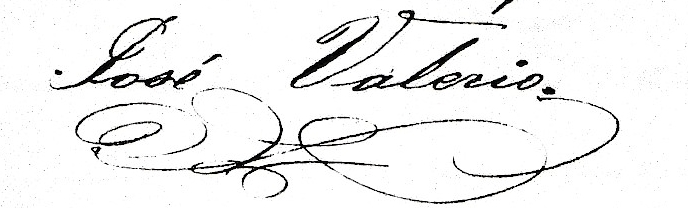 José Valerio.